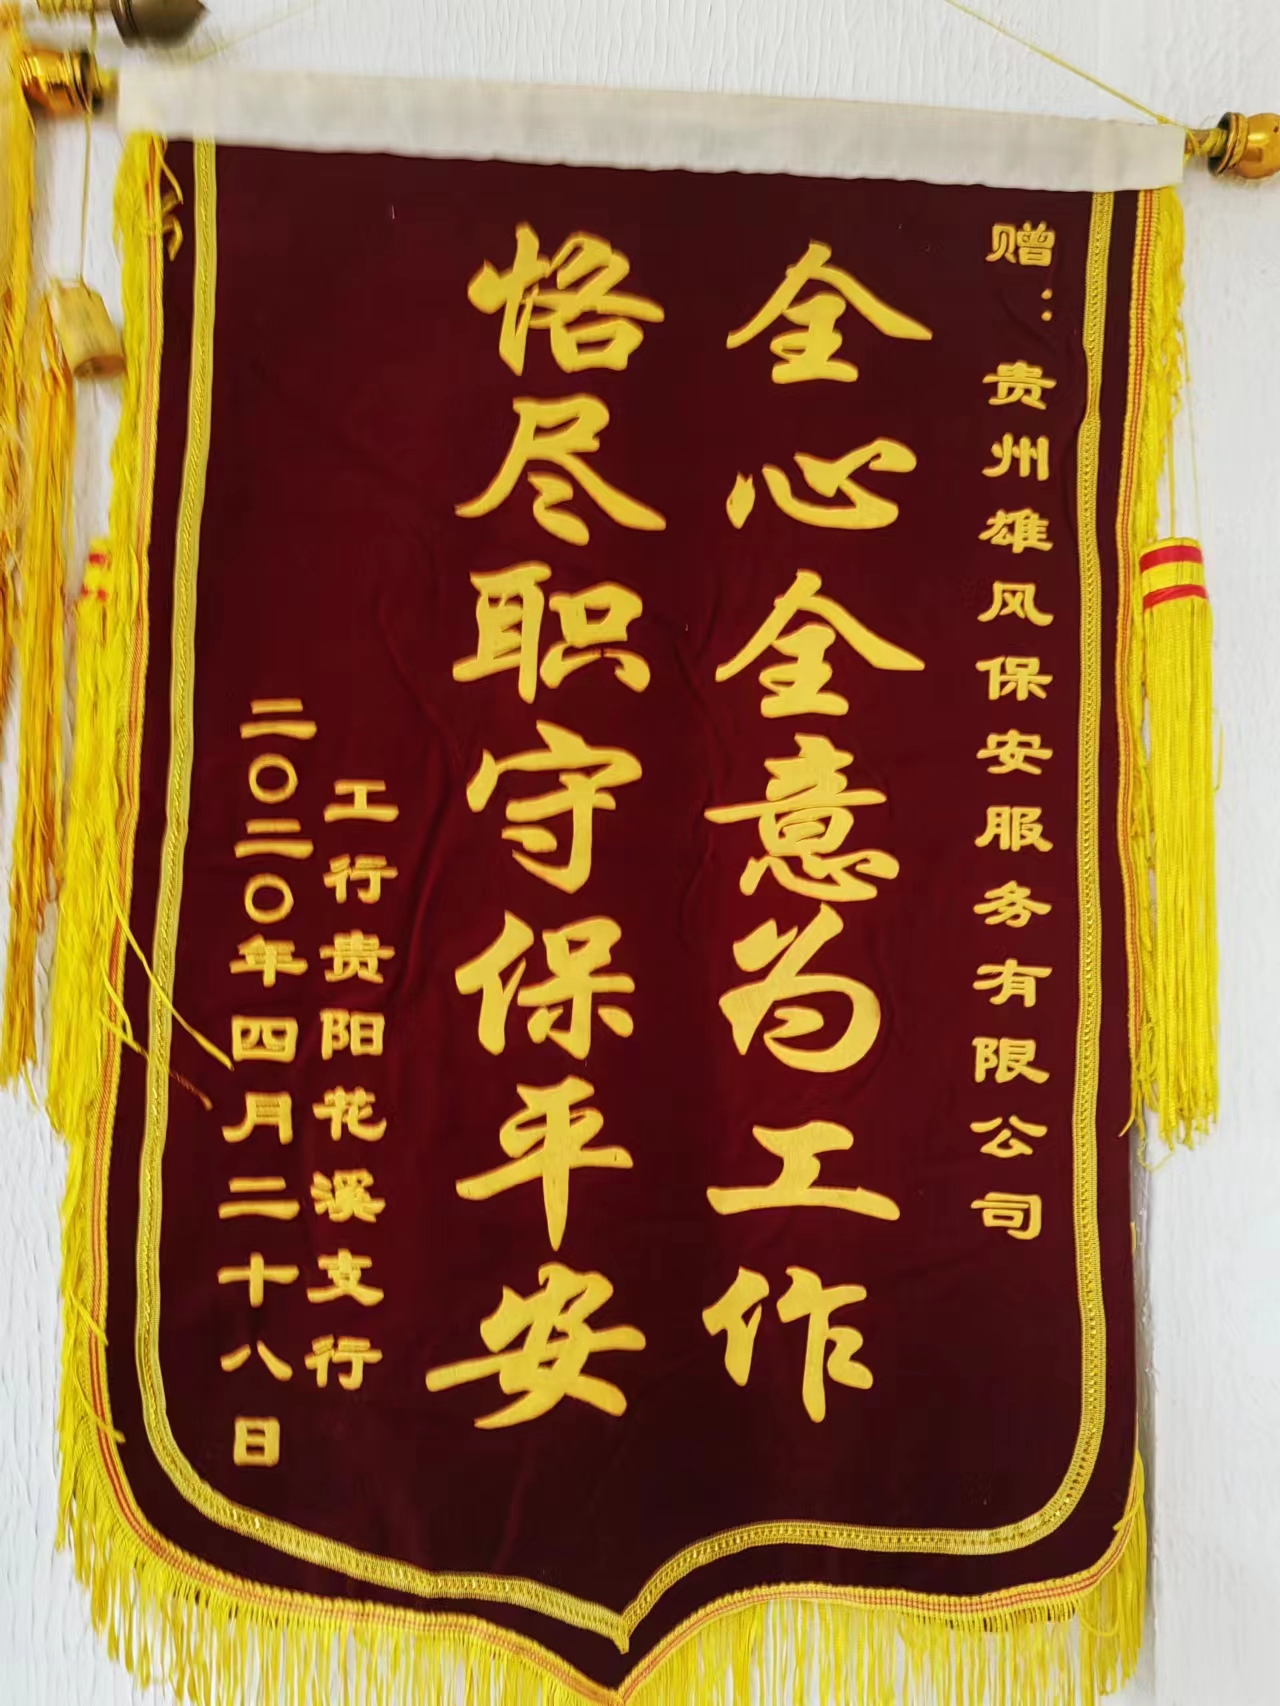 赠：贵州雄风保安服务有限公司
全心全意为工作
恪尽职守保平安
工行贵阳花溪支行
二〇二〇年四月二十八日